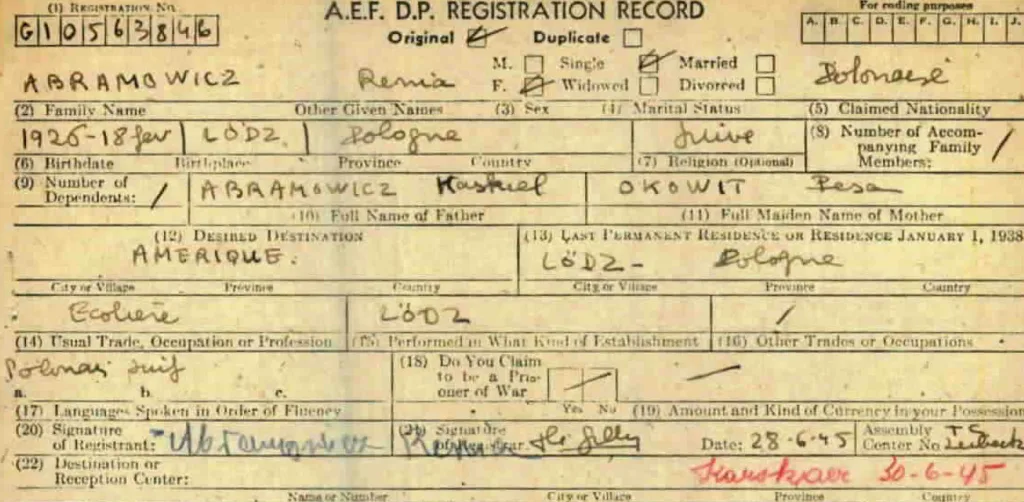 (1) REGISTRATION NO.
G10563846
A.E.F. D.P. REGISTRATION RECORD
Original Duplicate
For coding purposes
A. B. C. D. E. F. G. H. I. J.
ABRAMOWICZ Renia M. Single Married Polonaise
F. Widowed Divorced
(2) Family Name Other Given Names (3) Sex (4) Marital Status (5) Claimed Nationality
1926-18 fev LÖDZ. Pologne Juive (8) Number of Accompanying Family Members: /
(6) Birthdate Birthplace Province Country (7) Religion (Optional)
(9) Number of Dependents: / ABRAMOWICZ Haskiel OKOWIT Pesa
(10) Full Name of Father (11) Full Maiden Name of Mother
(12) DESIRED DESTINATION (13) LAST PERMANENT RESIDENCE OR RESIDENCE JANUARY 1, 1938
AMERIQUE. LÖDZ - Pologne
City or Village Province Country City or Village Province Country
Ecolière LÖDZ /
(14) Usual Trade, Occupation or Profession (15) Performed in What Kind of Establishment (16) Other Trades or Occupations
Polonais Juif
(18) Do You Claim to be a Prisoner of War
a. b. c.
Yes No
(17) Languages Spoken in Order of Fluency (19) Amount and Kind of Currency in your Possession
(20) Signature of Registrant: Abramowicz Renia (21) Signature of Registrar: Date: 28-6-45 Assembly Center No.
(22) Destination or Reception Center: 30-6-45
Name or Number City or Village Province Country